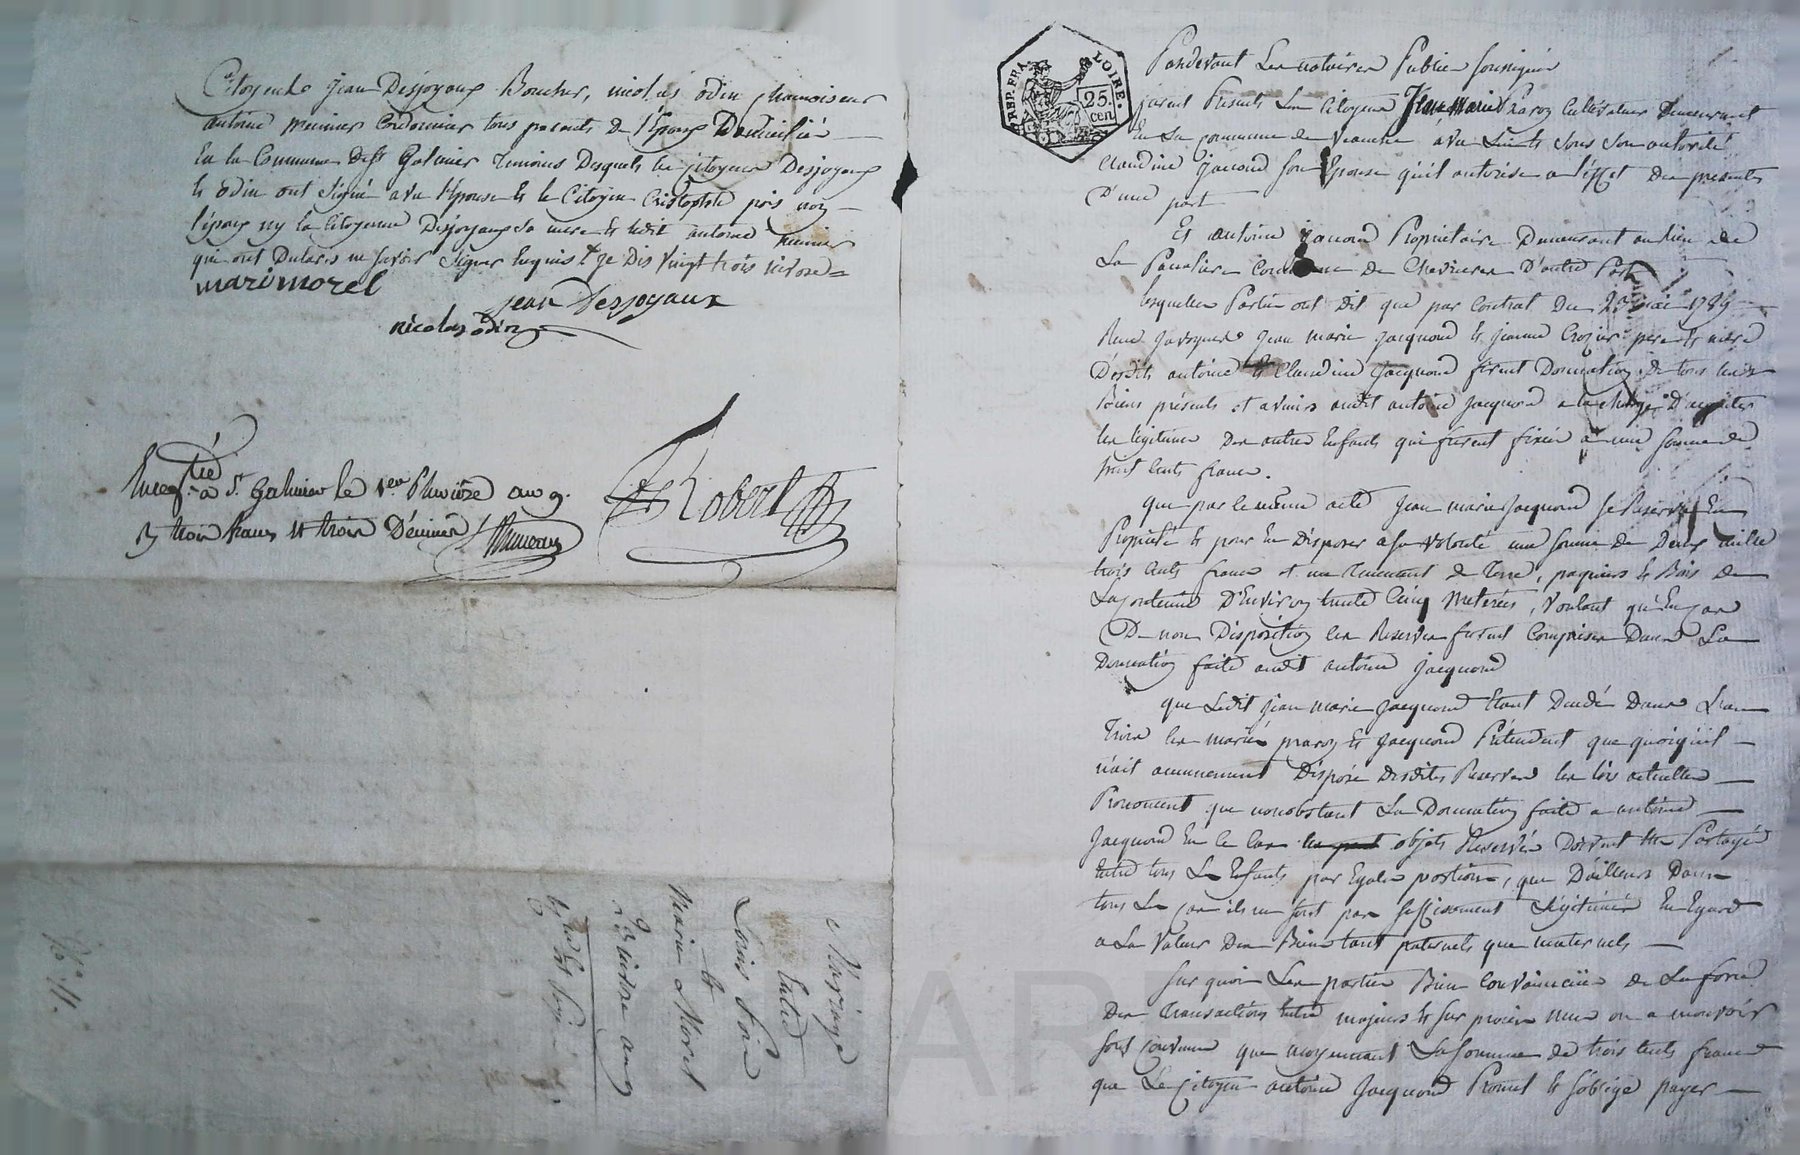 Citoyens Jean Desjoyaux Boucher, nicolas odin chamoiseur
antoine meunier Cordonnier tous parents de l'Epouse Domiciliés
En la Commune de St Galmier Temoins Desquels les citoyens Desjoyaux
et odin ont signé avec l'Epouse et le Citoyen Cristophle pois non
l'époux ny la Citoyenne Desjoyaux sa mere et ledit antoine meunier
qui ont Déclaré ne savoir signer Requis Je Dis vingt trois nivose
marimorel
jean Desjoyaux
nicolas odin
Enregtré a St Galmier le 1er Pluviôse an 9.
Rç trois francs et trois Décimes
Robert
Mariage
Entre
Louis Poix
et
Marie Morel
23 nivose an 9
REP. FRA.
LOIRE.
25.
cen.
Pardevant Les notaires Publics soussignés
furent Presents Les Citoyens Jean Marie Cultivateur Demeurant
En La commune de avec Lui et sous son autorité
Claudine Jacquond son Epouse qu'il autorise a l'effet Des presentes
D'une part
Et antoine Jacquond Proprietaire Demeurant au lieu de
La Commune de Chevrieres D'autre Part
lesquelles Parties ont dit que par contrat Du 23 mai 1789
Jean marie Jacquond et jeanne Crozier pere et mere
Desdits antoine et Claudine Jacquond firent Donnation de tous leurs
Biens présents et avenirs audit antoine Jacquond a la charge D'acquitter
les légitimes Des autres Enfants qui furent fixées a une somme de
cents francs.
que par le même acte Jean marie Jacquond se Reserva En
Propriété et pour En Disposer a sa volonté une somme de Deux mille
trois Cents francs et un tenement de Terre, paquiers et Bois De
La contenue D'Environ trente Cinq Meterées, voulant qu'En cas
De non Disposition les Reserves fussent comprises Dans La
Donnation faite audit antoine Jacquond
que Ledit jean marie Jacquond Etant Décédé Dans L'an
Trois les mariés et Jacquond Prétendent que quoiqu'il
n'ait aucunement Disposé Desdites Reserves les lois actuelles
Prononcent que nonobstant La Donnation faite a antoine
Jacquond En ce cas les objets Reservés Doivent Etre Partagés
Entre tous Les Enfants par Egales portions, que D'ailleurs Dans
tous Les cas ils ne sont pas suffisament Légitimés En Egard
a La Valeur Des Biens tant paternels que maternels
Sur quoi Les parties Bien Convaincues de La force
Des Transactions Entre majeurs et sur procès mus ou a mouvoir
sont convenues que moyennant La somme de trois cents francs
que Le Citoyen antoine Jacquond Promet et s'oblige payer